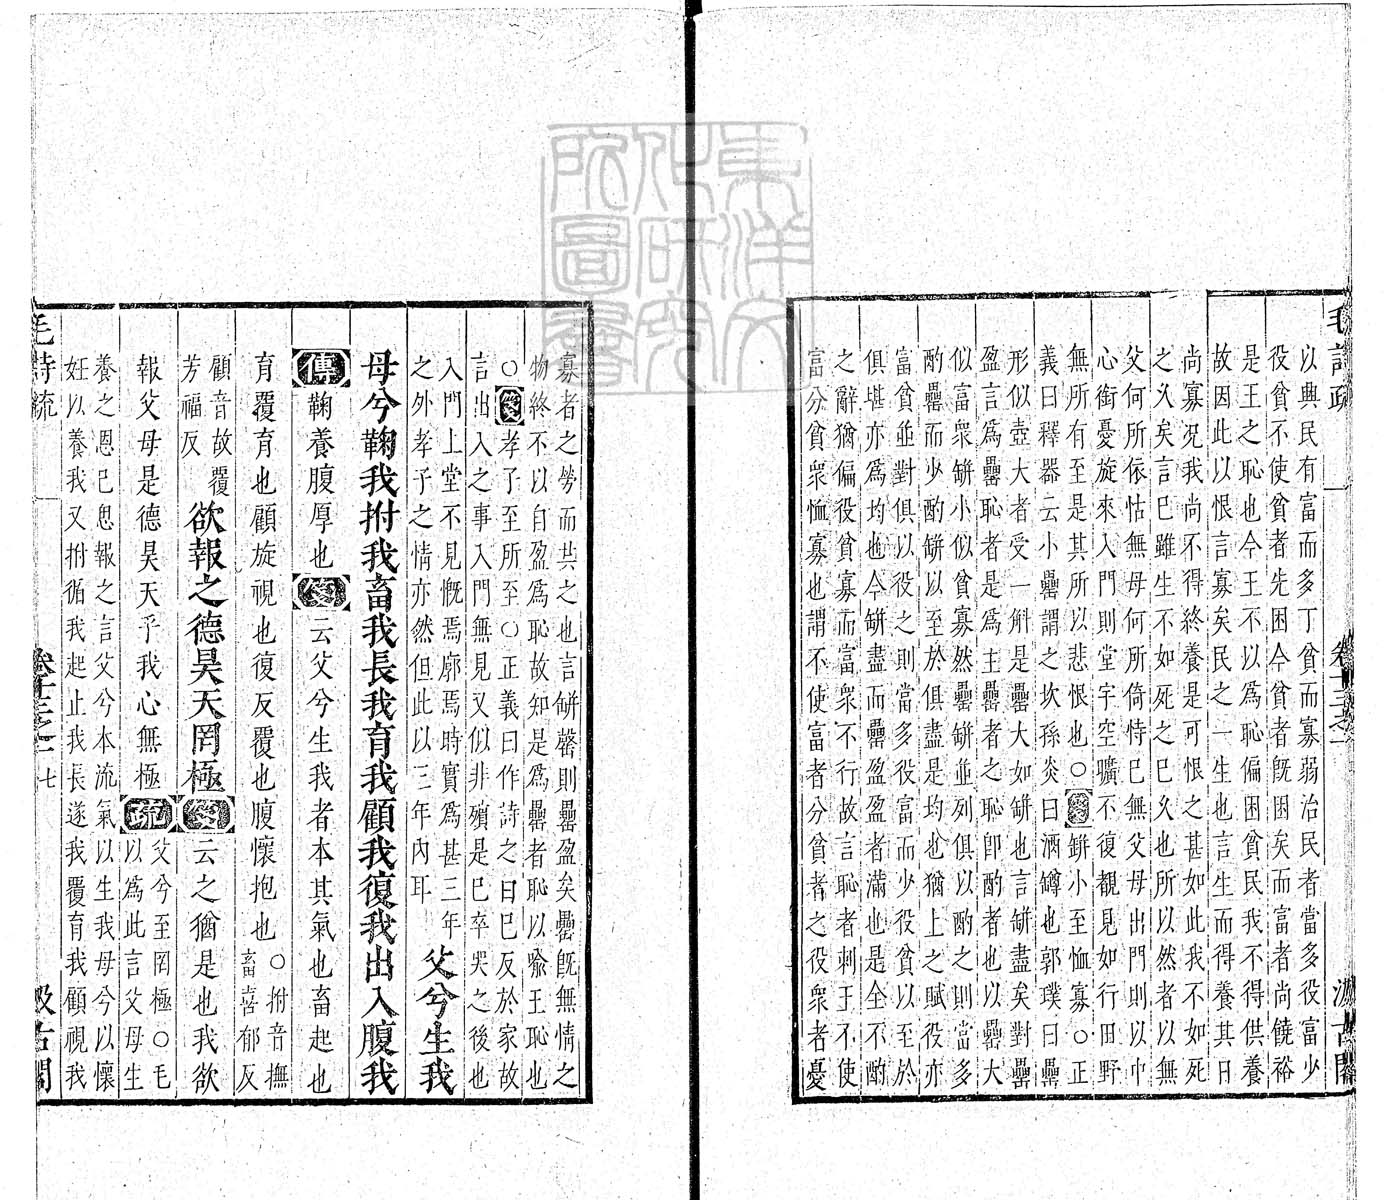 毛詩疏
卷十三之一
汲古閣
以與民有富而多丁貧而寡弱治民者當多役富少
役貧不使貧者先困今貧者既困矣而富者尚饒裕
是王之恥也今王不以為恥偏困貧民我不得供養
故因此以恨言寡矣民之一生也言生而得養其日
尚寡況我尚不得終養是可恨之甚如此我不如死
之久矣言已雖生不如死之已久也所以然者以無
父何所依怙無母何所倚恃已無父母出門則以中
心銜憂旋來入門則堂宇空曠不復覩見如行田野
無所有至是其所以悲恨也○箋缾小至恤寡○正
義曰釋器云小罍謂之坎孫炎曰酒罇也郭璞曰罍
形似壺大者受一斛是罍大如缾也言缾盡矣對罍
盈言為罍恥者是為主罍者之恥卽酌者也以罍大
似富衆缾小似貧寡然罍缾並列俱以酌之則當多
酌罍而少酌缾以至於俱盡是均也猶上之賦役亦
富貧並對俱以役之則當多役富而少役貧以至於
俱堪亦為均也今缾盡而罍盈盈者滿也是全不酌
之辭猶偏役貧寡而富衆不行故言恥者刺王不使
富分貧衆恤寡也謂不使富者分貧者之役衆者憂
寡者之勞而共之也言缾罄則罍盈矣罍既無情之
物終不以自盈為恥故知是為罍者恥以喻王恥也
○箋孝子至所至○正義曰作詩之日已反於家故
言出入之事入門無見又似非殯是已卒哭之後也
入門上堂不見慨焉廓焉時實為甚三年
之外孝子之情亦然但此以三年內耳
父兮生我
母兮鞠我拊我畜我長我育我顧我復我出入腹我
傳鞠養腹厚也箋云父兮生我者本其氣也畜起也
育覆育也顧旋視也復反覆也腹懷抱也
○拊音撫
畜喜郁反
顧音故覆
芳福反
欲報之德昊天罔極箋云之猶是也我欲
報父母是德昊天乎我心無極疏
父兮至罔極○毛
以為此言父母生
養之恩已思報之言父兮本流氣以生我母兮以懷
妊以養我又拊循我起止我長遂我覆育我顧視我
毛詩疏
卷十三之一
七
汲古閣
東洋文
化研究
所圖書